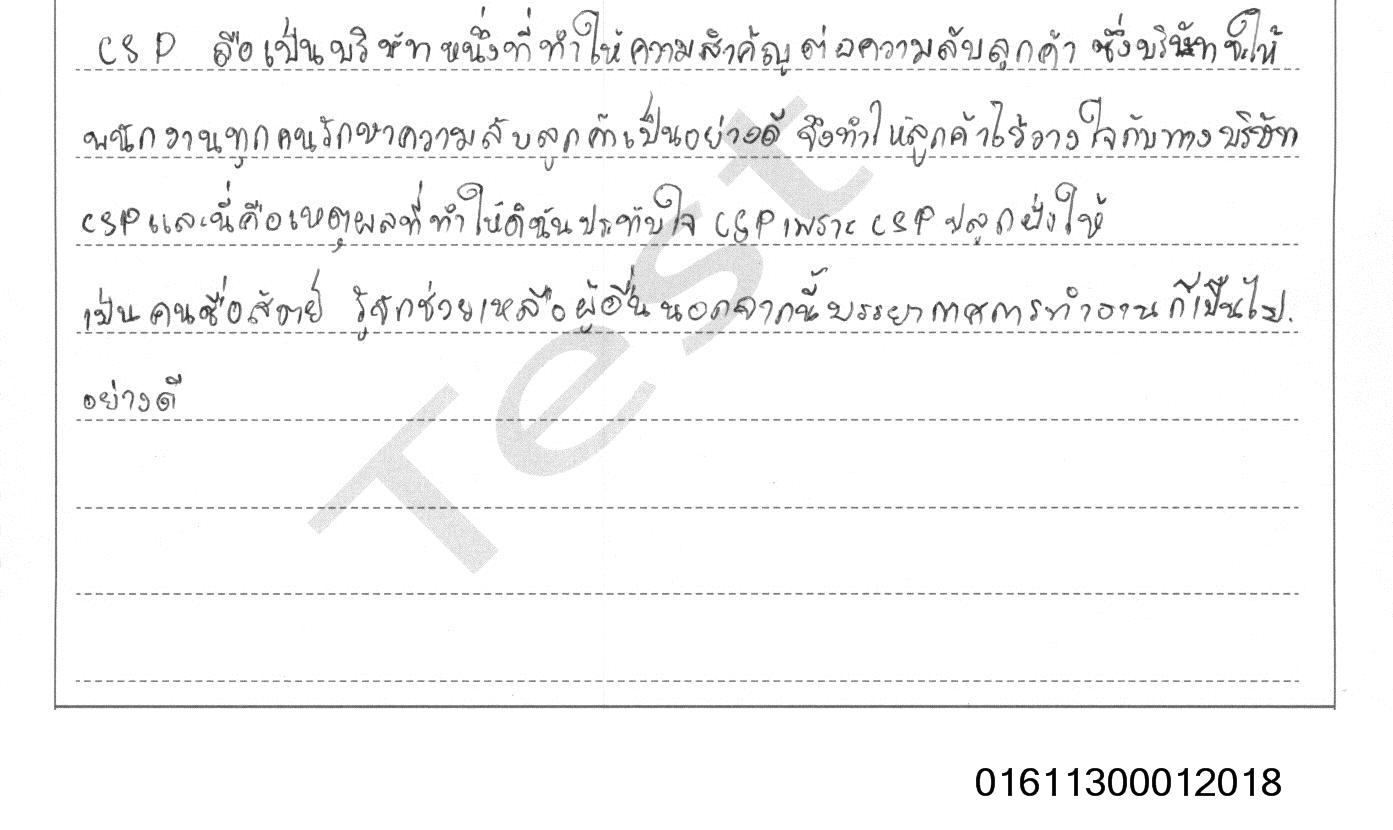 CSP ถือเป็นบริษัทหนึ่งที่ทำให้ความสำคัญต่อความลับลูกค้า ซึ่งบริษัทให้
พนักงานทุกคนรักษาความลับลูกค้าเป็นอย่างดี จึงทำให้ลูกค้าไว้วางใจกับทางบริษัท
CSP และนี่คือเหตุผลที่ทำให้ดิฉันประทับใจ CSP เพราะ CSP ปลูกฝังให้
เป็นคนซื่อสัตย์ รู้จักช่วยเหลือผู้อื่น นอกจากนี้บรรยากาศการทำงานก็เป็นไป.
อย่างดี
Test
01611300012018